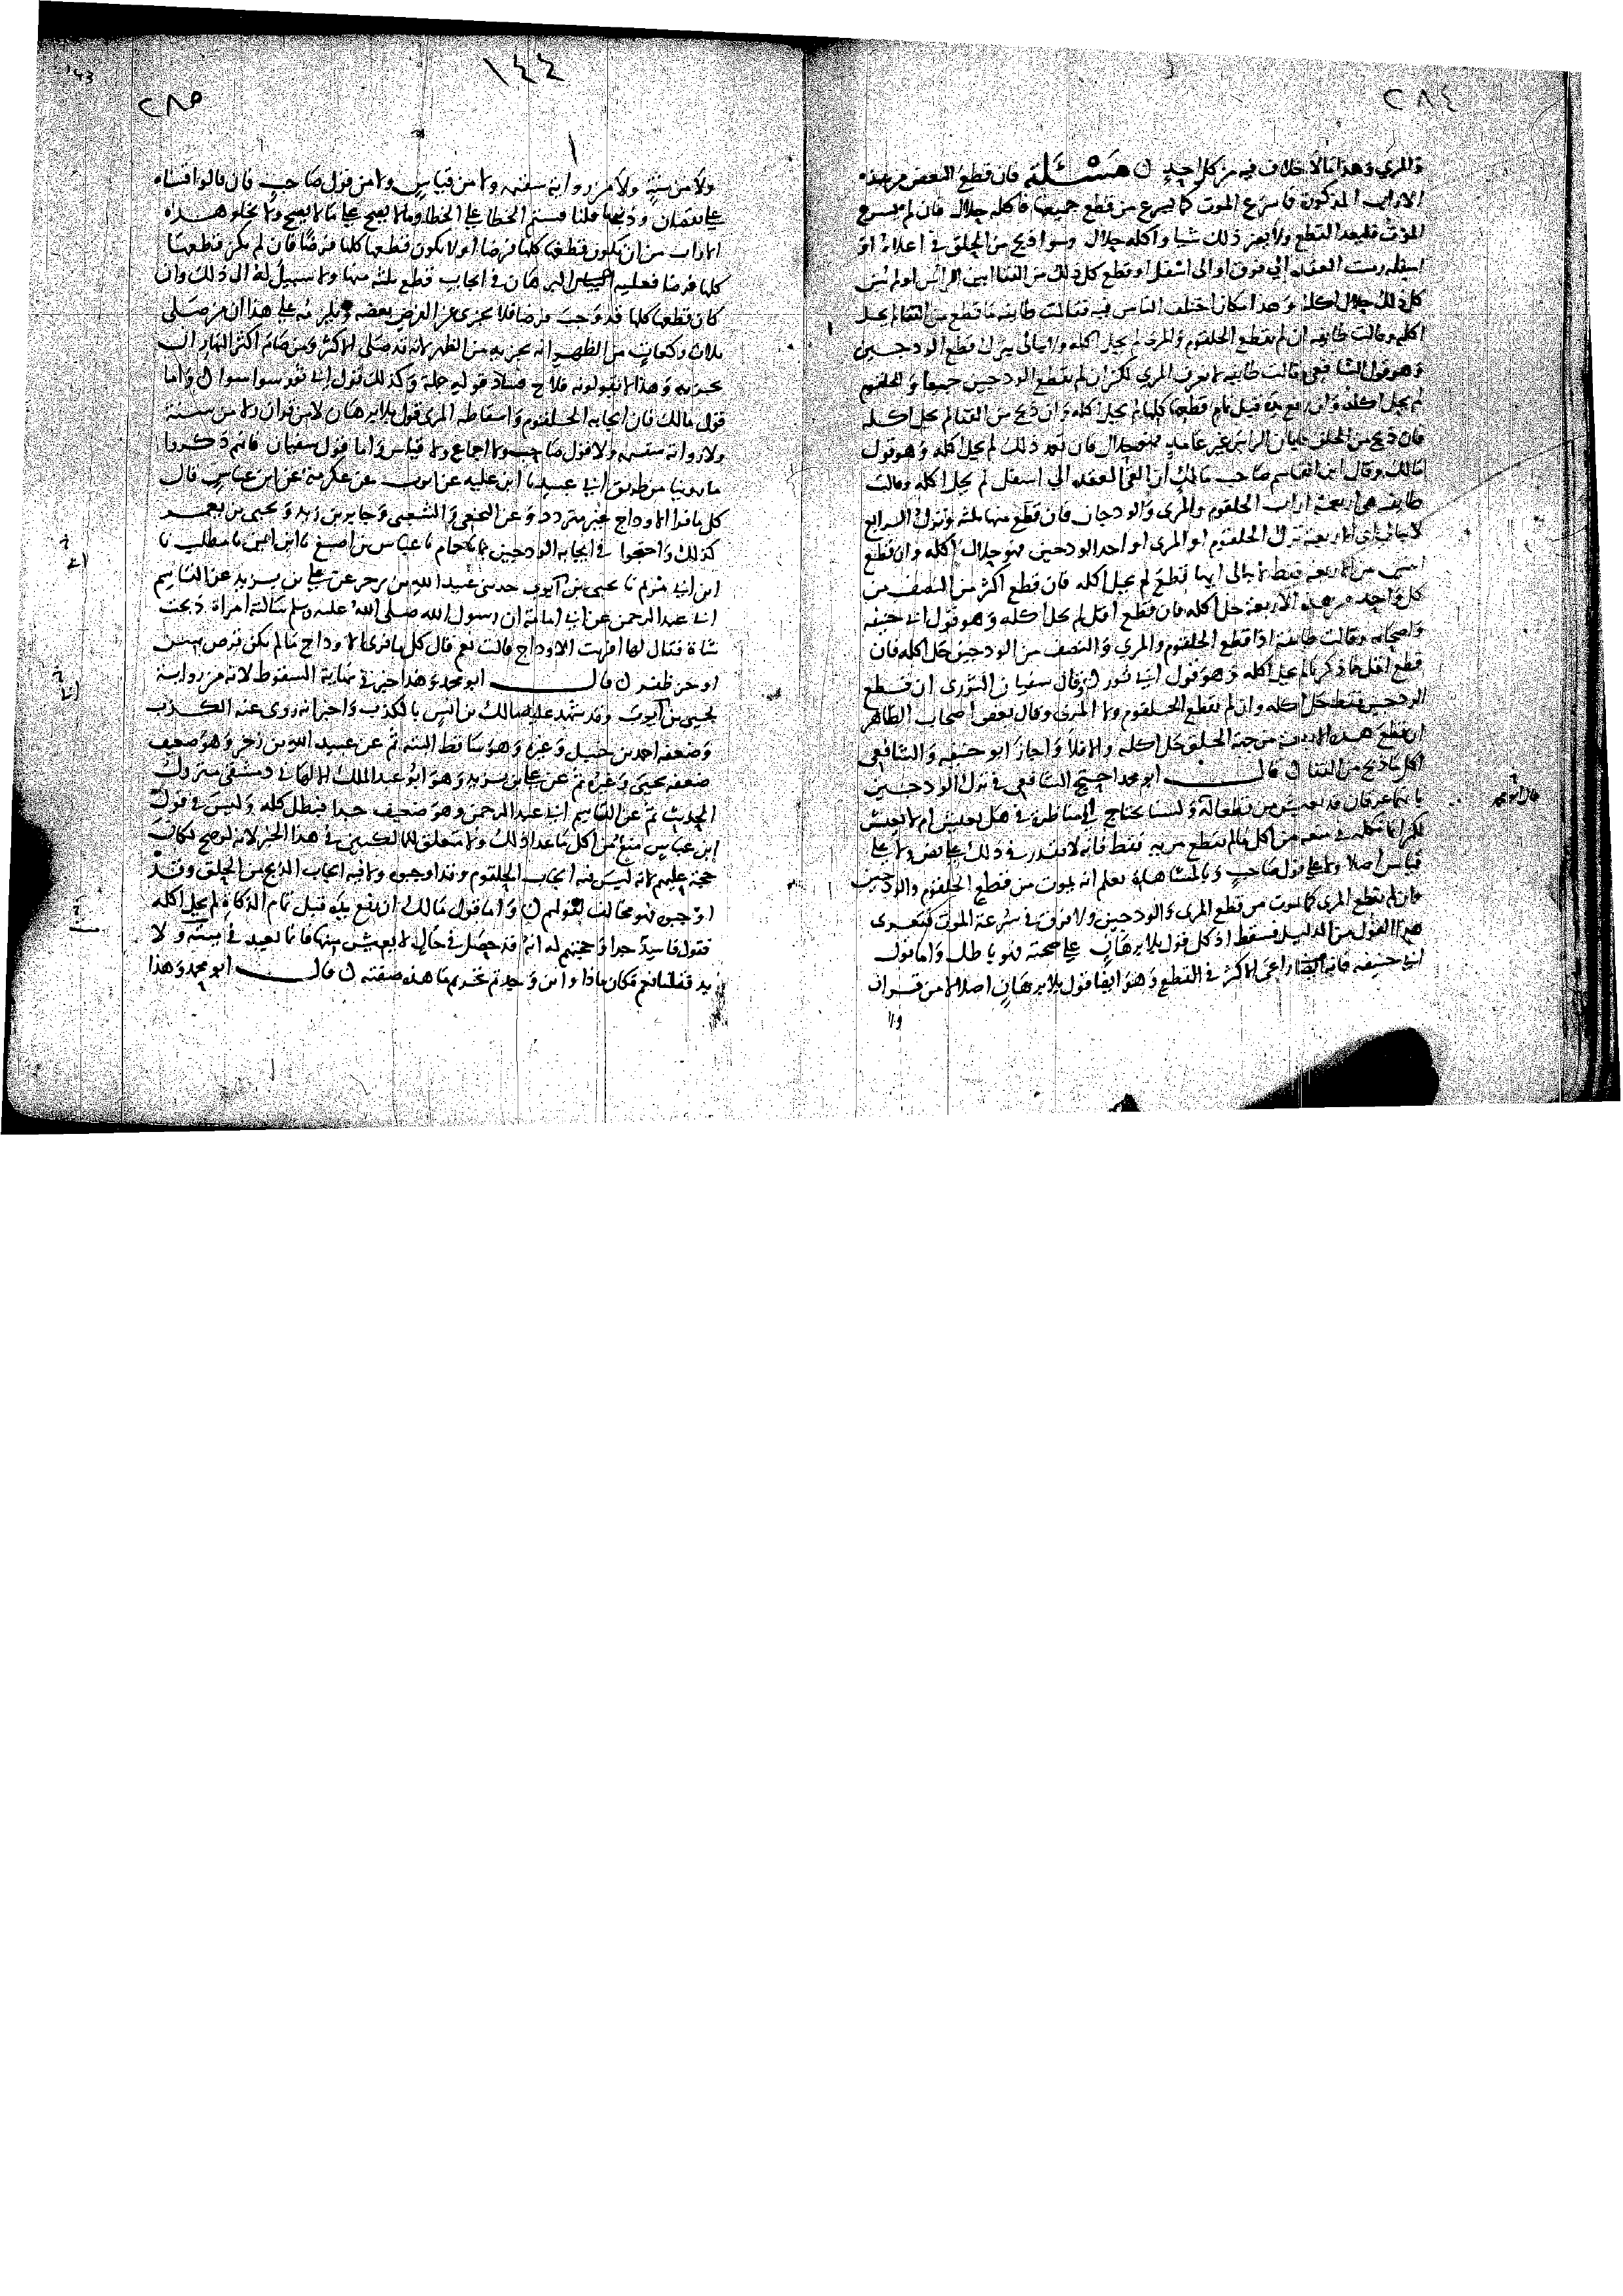 ٢٨٤
والمري وهذا مالا خلاف فيه من كل احد ن مسئلة فان قطع البعض من هذه
الاراب المذكورة فاسرع الموت كما يسرع من قطع جميعها فاكله حلال فان لم يسرع
الموت فليعد القطع ولا يضر ذلك شيا واكله حلال وسوا ذبح من الحلق في اعلاه او
اسفله رميت العقده الي فوق او الى اسفل او قطع كل ذلك من القفا ابين الراس او لم يبن
كل ذلك حلال اكله وهذا مكان اختلف الناس فيه فقالت طايفه ما قطع من القفا لم يحل
اكله وقالت طايفه ان لم يقطع الحلقوم والمري لم يحل اكله ولا يبالى بترك قطع الودجين
وهو قول الشافعي وقالت طايفه لا نعرف المري لكن ان لم يقطع الودجين جميعا والحلقوم
لم يحل اكله وان رفع يده قبل تمام قطعها كلها لم يحل اكله وان ذبح من القفا لم يحل اكله
فان ذبح من الحلق فابان الراس غير عامد فهو حلال فان تعمد ذلك لم يحل اكله وهو قول
مالك وقال ابن القاسم صاحب مالك ان القى العقده الي اسفل لم يحل اكله وقالت
طايفه هي اربعة اراب الحلقوم والمري والودجان فان قطع منها ثلثه وترك الرابع
لا يبالي اي الاربعة ترك الحلقوم او المري او احد الودجين فهو حلال اكله وان قطع
اثنين من الاربعه فقط لا يبالى ايها قطع لم يحل اكله فان قطع اكثر من النصف من
كل واحد من هذه الاربعة حل اكله فان قطع اقل لم يحل اكله وهو قول ابي حنيفه
واصحابه وقالت طايفة اذا قطع الحلقوم والمري والنصف من الودجين حل اكله فان
قطع اقل مما ذكرنا لم يحل اكله وهو قول ابي ثور ن وقال سفيان الثوري ان قطع
الودجين فقط حل اكله وان لم يقطع الحلقوم ولا المري وقال بعض اصحاب الظاهر
ان قطع هذه الاربعة من جهة الحلق حل اكله والا فلا واجاز ابو حنيفه والشافعي
اكل ما ذبح من القفا ن قال ابو محمد احتج الشافعي في ترك الودجين
بانهما عرقان قد يعيش من قطعا له ولسنا نحتاج الي مناظرة في هل يعيش ام لا يعيش
لكن انما نكلمه في منعه من اكل ما لم يقطع مريه فقط فانه لا يقدر في ذلك علي نص ولا علي
قياس اصلا ولا علي قول صاحب وبالمشاهدة نعلم انه يموت من قطع الحلقوم والودجين
فان لم يقطع المري كما يموت من قطع المري والودجين ولا فرق في سرعة الموت فتعرى
هذا القول من الدليل فسقط اذ كل قول بلا برهان علي صحته فهو باطل واما قول
ابي حنيفه فانه ايضا راعى الاكثر في القطع وهو ايضا قول بلا برهان اصلا لا من قران
ولا
قال ابو محمد
١٤٤
٢٨٥
143
ولا من سنة ولا من رواية سقيمه ولا من قياس ولا من قول صاحب فان قالوا قسناه
علي نقصان وذنبها قلنا قستم الخطا علي الخطا وما لا يصح علي ما لا يصح ولا يخلو هذه
الاراب من ان يكون قطعها كلها فرضا او لا يكون قطعها كلها فرضا فان لم يكن قطعها
كلها فرضا فعليه البرهان في ايجاب قطع ثلثه منها ولا سبيل له الى ذلك وان
كان قطعها كلها قد وجب فرضا فلا يجزى عن الفرض بعضه ويلزمه علي هذا ان من صلى
ثلاث ركعات من الظهر انه يجزيه من الظهر لانه قد صلى الاكثر ومن صام اكثر النهار ان
يجزيه وهذا لا يقولونه فلاح فساد قوله جملة وكذلك قول ابي ثور سوا سوا ن واما
قول مالك فان ايجابه الحلقوم واسقاطه المري قول بلا برهان لا من قران ولا من سنة
ولا رواية سقيمه ولا قول صاحب ولا اجماع ولا قياس واما قول سفيان فانهم ذكروا
ما روينا من طريق ابي عبيد نا ابن عليه عن ايوب عن عكرمة عن ابن عباس قال
كل ما فرا الاوداج غير مترد وعن النخعي والشعبي وجابر بن زيد ويحيى بن يعمر
كذلك واحتجوا في ايجابه الودجين بما نا حمام نا عباس بن اصبغ نا ابن ايمن نا مطلب نا
ابن ابي مريم نا يحيى بن ايوب حدثني عبيد الله بن زحر عن علي بن يزيد عن القاسم
ابي عبد الرحمن عن ابي امامة ان رسول الله صلى الله عليه وسلم سالته امراة ذبحت
شاة فقال لها افريت الاوداج قالت نعم قال كل ما فرى الاوداج ما لم يكن قرض بسن
او حز ظفر ن قال ابو محمد وهذا خبر في نهاية السقوط لانه من رواية
يحيى بن ايوب وقد شهد عليه مالك بن انس بالكذب واخبر انه روى عنه الكذب
وضعفه احمد بن حنبل وغيره وهو ساقط البتة ثم عن عبيد الله بن زحر وهو ضعيف
ضعفه يحيى وغيره ثم عن علي بن يزيد وهو ابو عبد الملك الالهاني دمشقي متروك
الحديث ثم عن القاسم ابي عبد الرحمن وهو ضعيف جدا فبطل كله وليس في قول
ابن عباس منع من اكل ما عدا ذلك ولا متعلق للمالكيين في هذا الخبر لانه لو صح لكان
حجة عليهم لانه ليس فيه ايجاب الحلقوم وقد اوجبوه ولا فيه ايجاب الذبح من الحلق وقد
اوجبوه فهو مخالف لقولهم ن واما قول مالك ان يرفع يده قبل تمام الذكاة لم يحل اكله
فقول فاسد جدا وحجتهم له انه قد حصل في حال لا يعيش منها فانما يعيد في ميتة ولا
بد فقلنا نعم فكان ماذا واين وجدتم تحريم ما هذه صفته ن قال ابو محمد وهذا